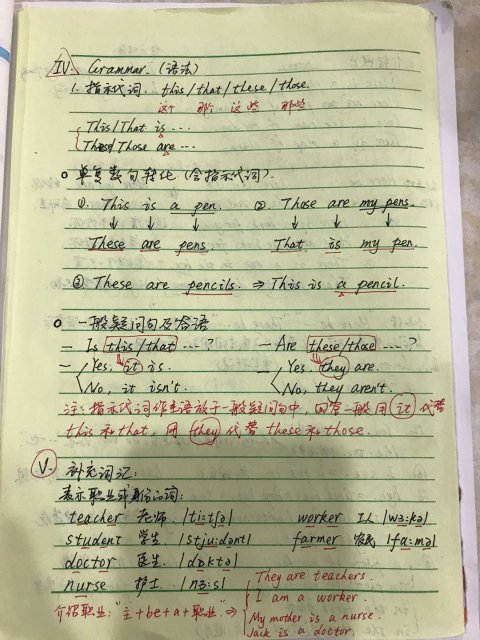 IV. Grammar. (语法)
1. 指示代词: this / that / these / those.
这个 那个 这些 那些
This / That is ...
These / Those are ...
○ 单复数句转化 (含指示代词).
①. This is a pen. ② Those are my pens.
↓ ↓ ↓ ↓ ↓ ↓
These are pens. That is my pen.
③ These are pencils. ⇒ This is a pencil.
○ 一般疑问句及答语
— Is this / that ...? — Are these / those ...?
— Yes, it is. Yes, they are.
No, it isn't. No, they aren't.
注: 指示代词作主语放于一般疑问句中, 回答一般用 it 代替
this 和 that, 用 they 代替 these 和 those.
V. 补充词汇:
表示职业或身份的词:
teacher 老师. |ti:tʃə| worker 工人 |wɜ:kə|
student 学生. |stju:dənt| farmer 农民 |fa:mə|
doctor 医生. |dɒktə|
nurse 护士. |nɜ:s|
They are teachers.
介绍职业: "主+be+a+职业." ⇒ I am a worker.
My mother is a nurse.
Jack is a doctor.